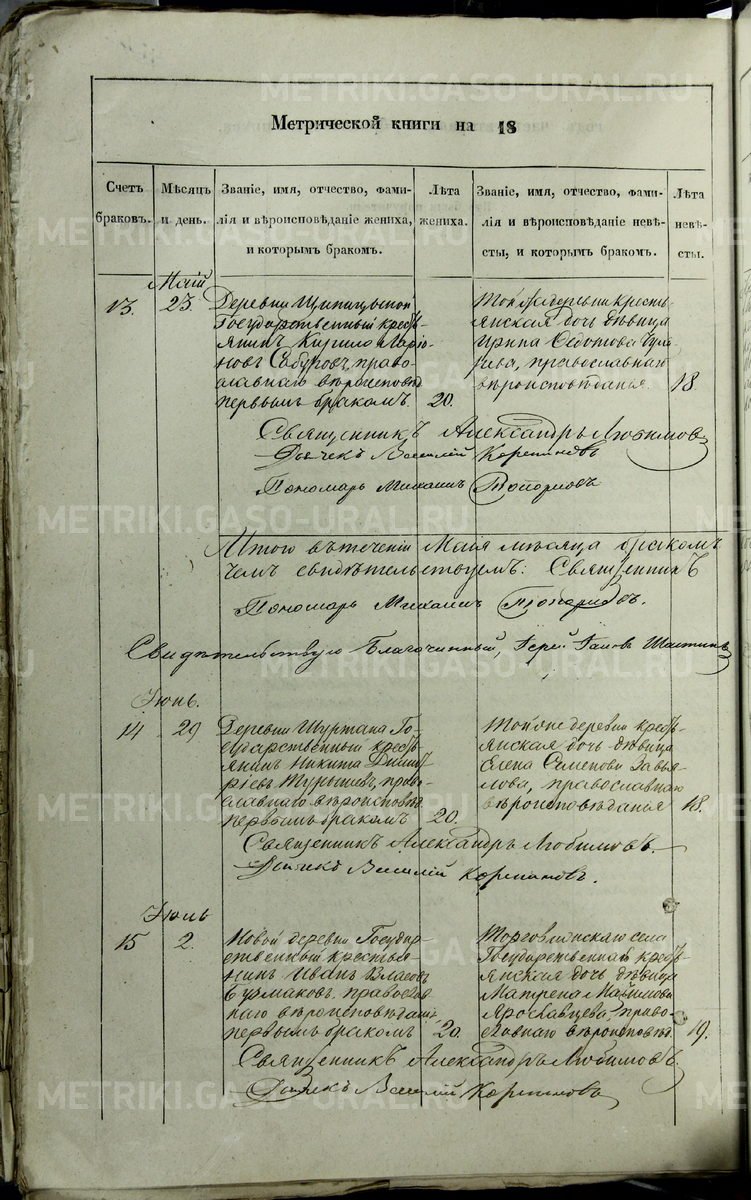 METRIKI.GASO-URAL.RU
Метрической книги на 18
Счетъ браковъ.
Мѣсяцъ и день.
Званіе, имя, отчество, фамилія и вѣроисповѣданіе жениха, и которымъ бракомъ.
Лѣта жениха.
Званіе, имя, отчество, фамилія и вѣроисповѣданіе невѣсты, и которымъ бракомъ.
Лѣта невѣсты.
Маій
13. 23. Деревни
Государственный кресть-
янинъ Кирило
новъ Сабуровъ, право-
славнаго вѣроисповѣд
первымъ бракомъ. 20.
Той же деревни кресть-
янская дочь дѣвица
Ирина Ѳедотова
православнаго
вѣроисповѣданья. 18.
Священникъ Александръ Любимовъ
Дьячекъ Василій
Пономарь Михаилъ Топорковъ
Итого въ теченіи Маія мѣсяца браком
чемъ свидѣтельствуемъ: Священникъ
Пономарь Михаилъ Топорковъ.
Свидѣтельствую Благочинный, Іерей
Іюнь.
14 29 Деревни Шуртана Го-
сударственный кресть-
янинъ Никита Дмит-
ріевъ право-
славнаго вѣроисповѣд
первымъ бракомъ 20.
Той же деревни кресть-
янская дочь дѣвица
Елена Семенова Завья-
лова, православнаго
вѣроисповѣданья 18.
Священникъ Александръ Любимовъ.
Дьячекъ Василій
Іюль
15 2. Новой деревни Государ-
ственный крестья-
нинъ Иванъ Власовъ
Бузмаковъ, православ
наго вѣроисповѣданія
первымъ бракомъ 20.
Торговижскаго села
Государственная кресть-
янская дочь дѣвица
Матрена
Ярославцева, право-
славнаго вѣроисповѣд. 19.
Священникъ Александръ Любимовъ.
Дьячекъ Василій